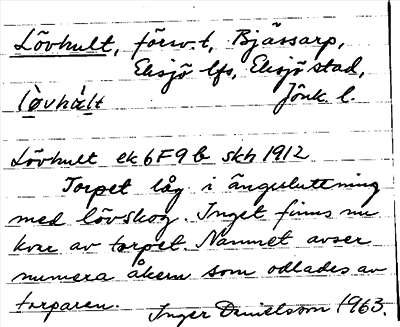 Lövhult, försv. t, Bjässarp,
Eksjö lfs, Eksjö stad,
lò̤vhà̤lt Jönk. l.
Lövhult ek 6F9b skh 1912
Torpet låg i ängssluttning
med lövskog. Inget finns nu
kvar av torpet. Namnet avser
numera åkern som odlades av
torparen.
Inger Danielsson 1963.